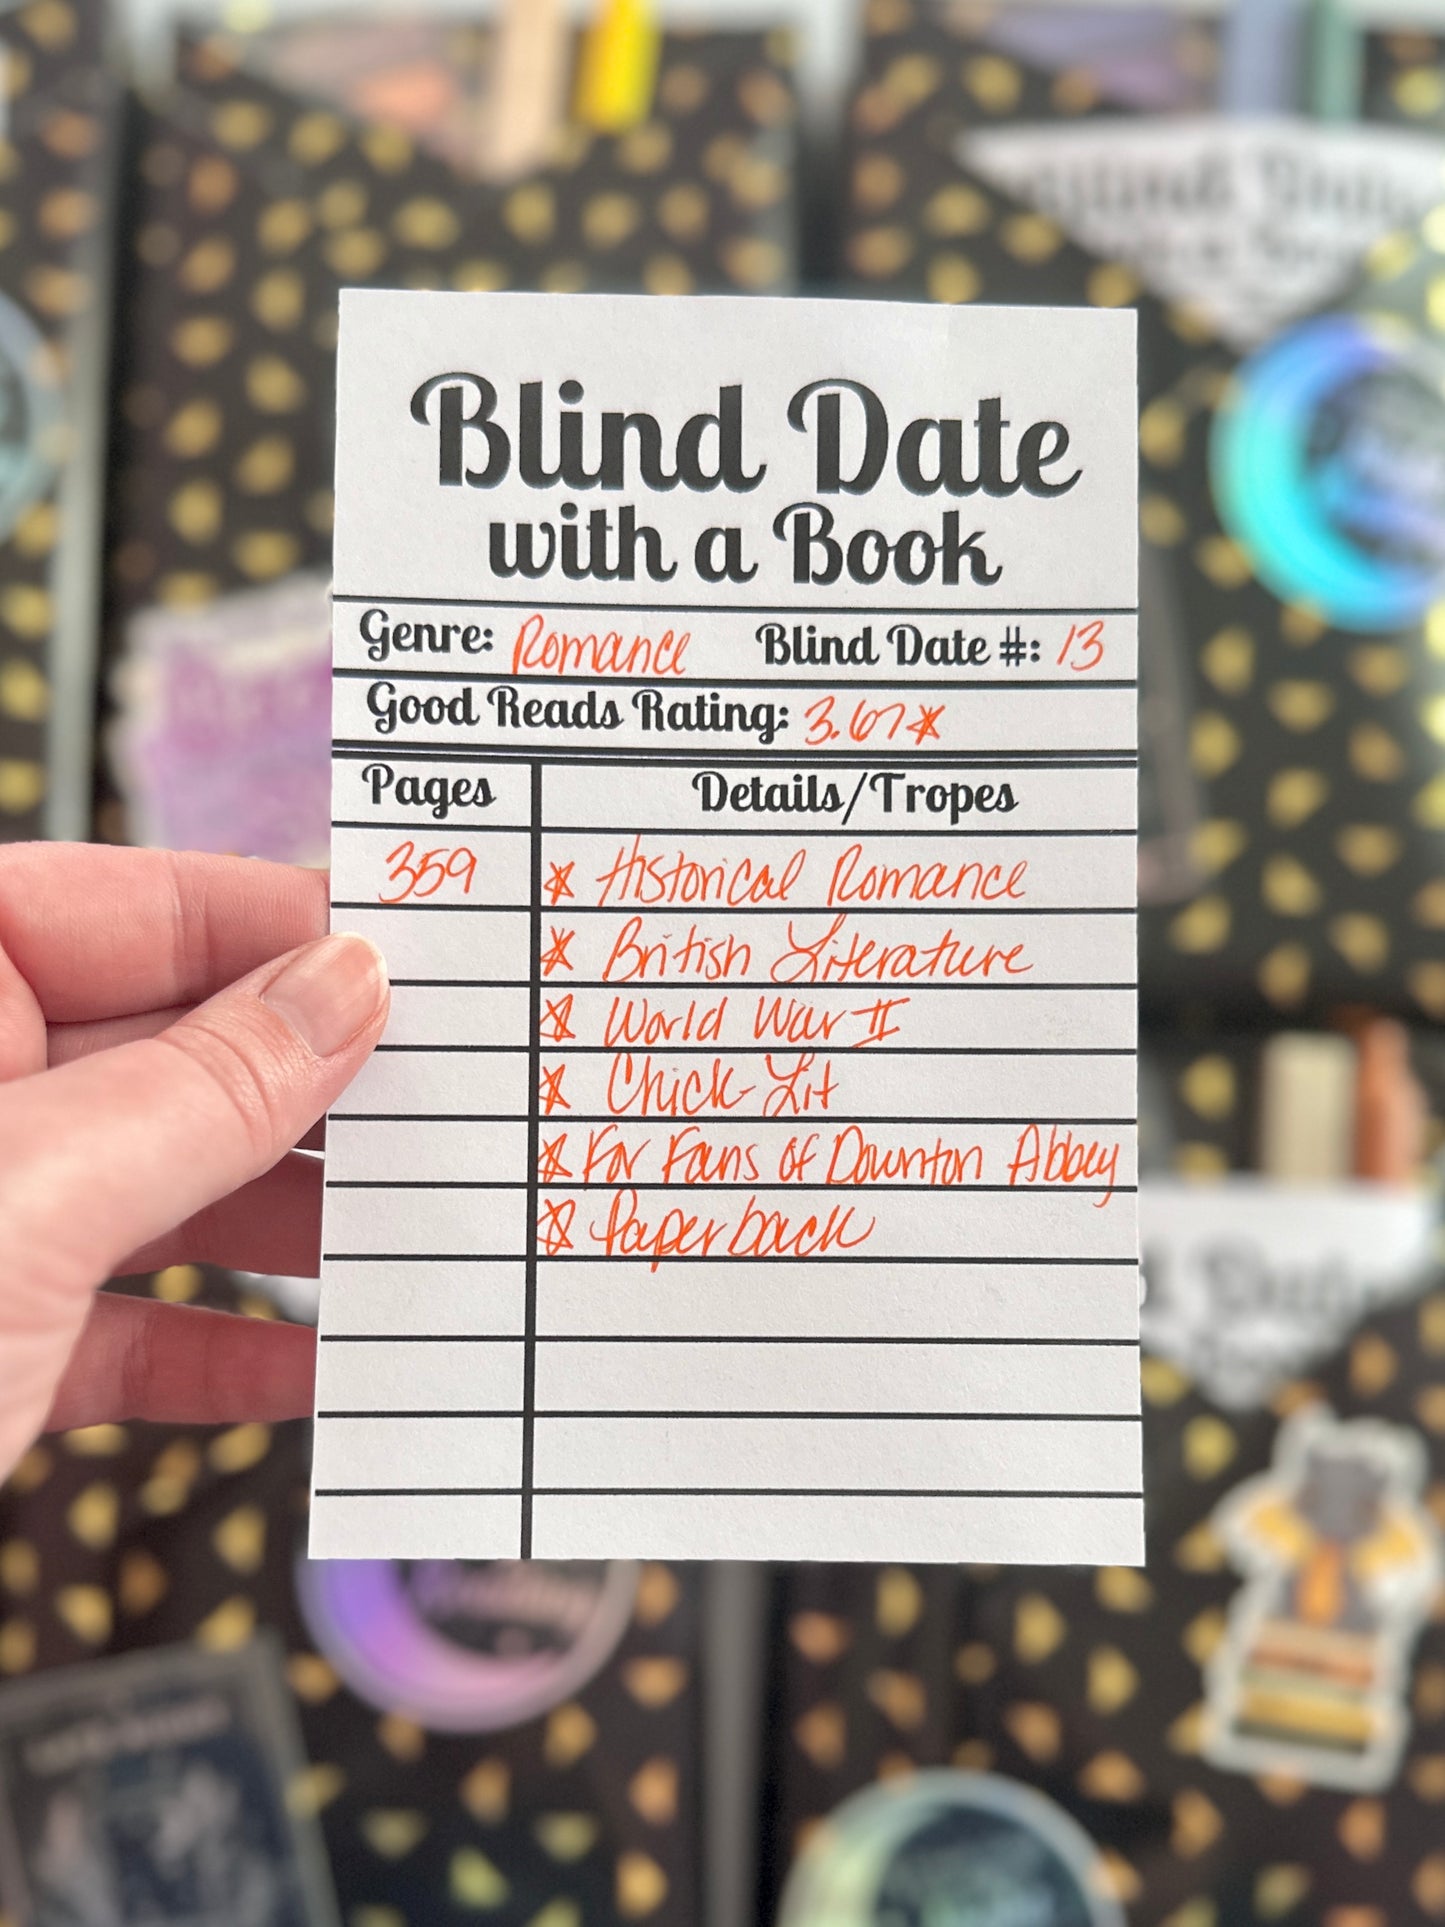 Blind Date
with a Book
Genre: Romance Blind Date #: 13
Good Reads Rating: 3.67★
Pages Details/Tropes
359 ★ Historical Romance
★ British Literature
★ World War II
★ Chick-Lit
★ For Fans of Downton Abbey
★ Paperback